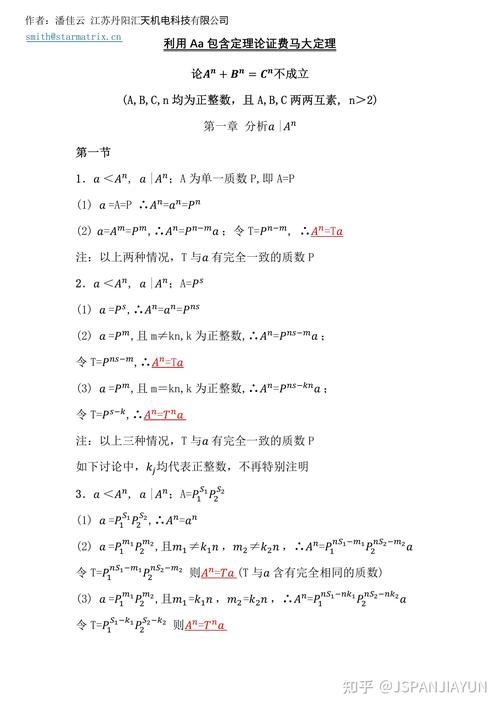 作者：潘佳云 江苏丹阳汇天机电科技有限公司
smith@starmatrix.cn
利用 Aa 包含定理论证费马大定理
论Aⁿ + Bⁿ = Cⁿ不成立
(A,B,C,n 均为正整数，且 A,B,C 两两互素，n＞2)
第一章 分析a|Aⁿ
第一节
1. a＜Aⁿ, a|Aⁿ；A 为单一质数 P,即 A=P
(1) a=A=P ∴Aⁿ=aⁿ=Pⁿ
(2) a=Aᵐ=Pᵐ,∴Aⁿ=Pⁿ⁻ᵐa；令 T=Pⁿ⁻ᵐ, ∴Aⁿ=Ta
注：以上两种情况，T 与a有完全一致的质数 P
2. a＜Aⁿ, a|Aⁿ；A=Pˢ
(1) a=Pˢ,∴Aⁿ=aⁿ=Pⁿˢ
(2) a=Pᵐ,且 m≠kn,k 为正整数,∴Aⁿ=Pⁿˢ⁻ᵐa；
令 T=Pⁿˢ⁻ᵐ,∴Aⁿ=Ta
(3) a=Pᵐ,且 m＝kn,k 为正整数,∴Aⁿ=Pⁿˢ⁻ᵏⁿa；
令 T=Pˢ⁻ᵏ,∴Aⁿ=Tⁿa
注：以上三种情况，T 与a有完全一致的质数 P
如下讨论中，k_j均代表正整数，不再特别注明
3. a＜Aⁿ, a|Aⁿ；A=P₁^{S₁}P₂^{S₂}
(1) a=P₁^{S₁}P₂^{S₂},∴Aⁿ=aⁿ
(2) a=P₁^{m₁}P₂^{m₂},且m₁≠k₁n，m₂≠k₂n，∴Aⁿ=P₁^{nS₁−m₁}P₂^{nS₂−m₂}a
令 T=P₁^{nS₁−m₁}P₂^{nS₂−m₂} 则Aⁿ=Ta(T 与a含有完全相同的质数)
(3) a=P₁^{m₁}P₂^{m₂},且m₁=k₁n，m₂=k₂n，∴Aⁿ=P₁^{nS₁−nk₁}P₂^{nS₂−nk₂}a
令 T=P₁^{S₁−k₁}P₂^{S₂−k₂} 则Aⁿ=Tⁿa
知乎 @JSPANJIAYUN